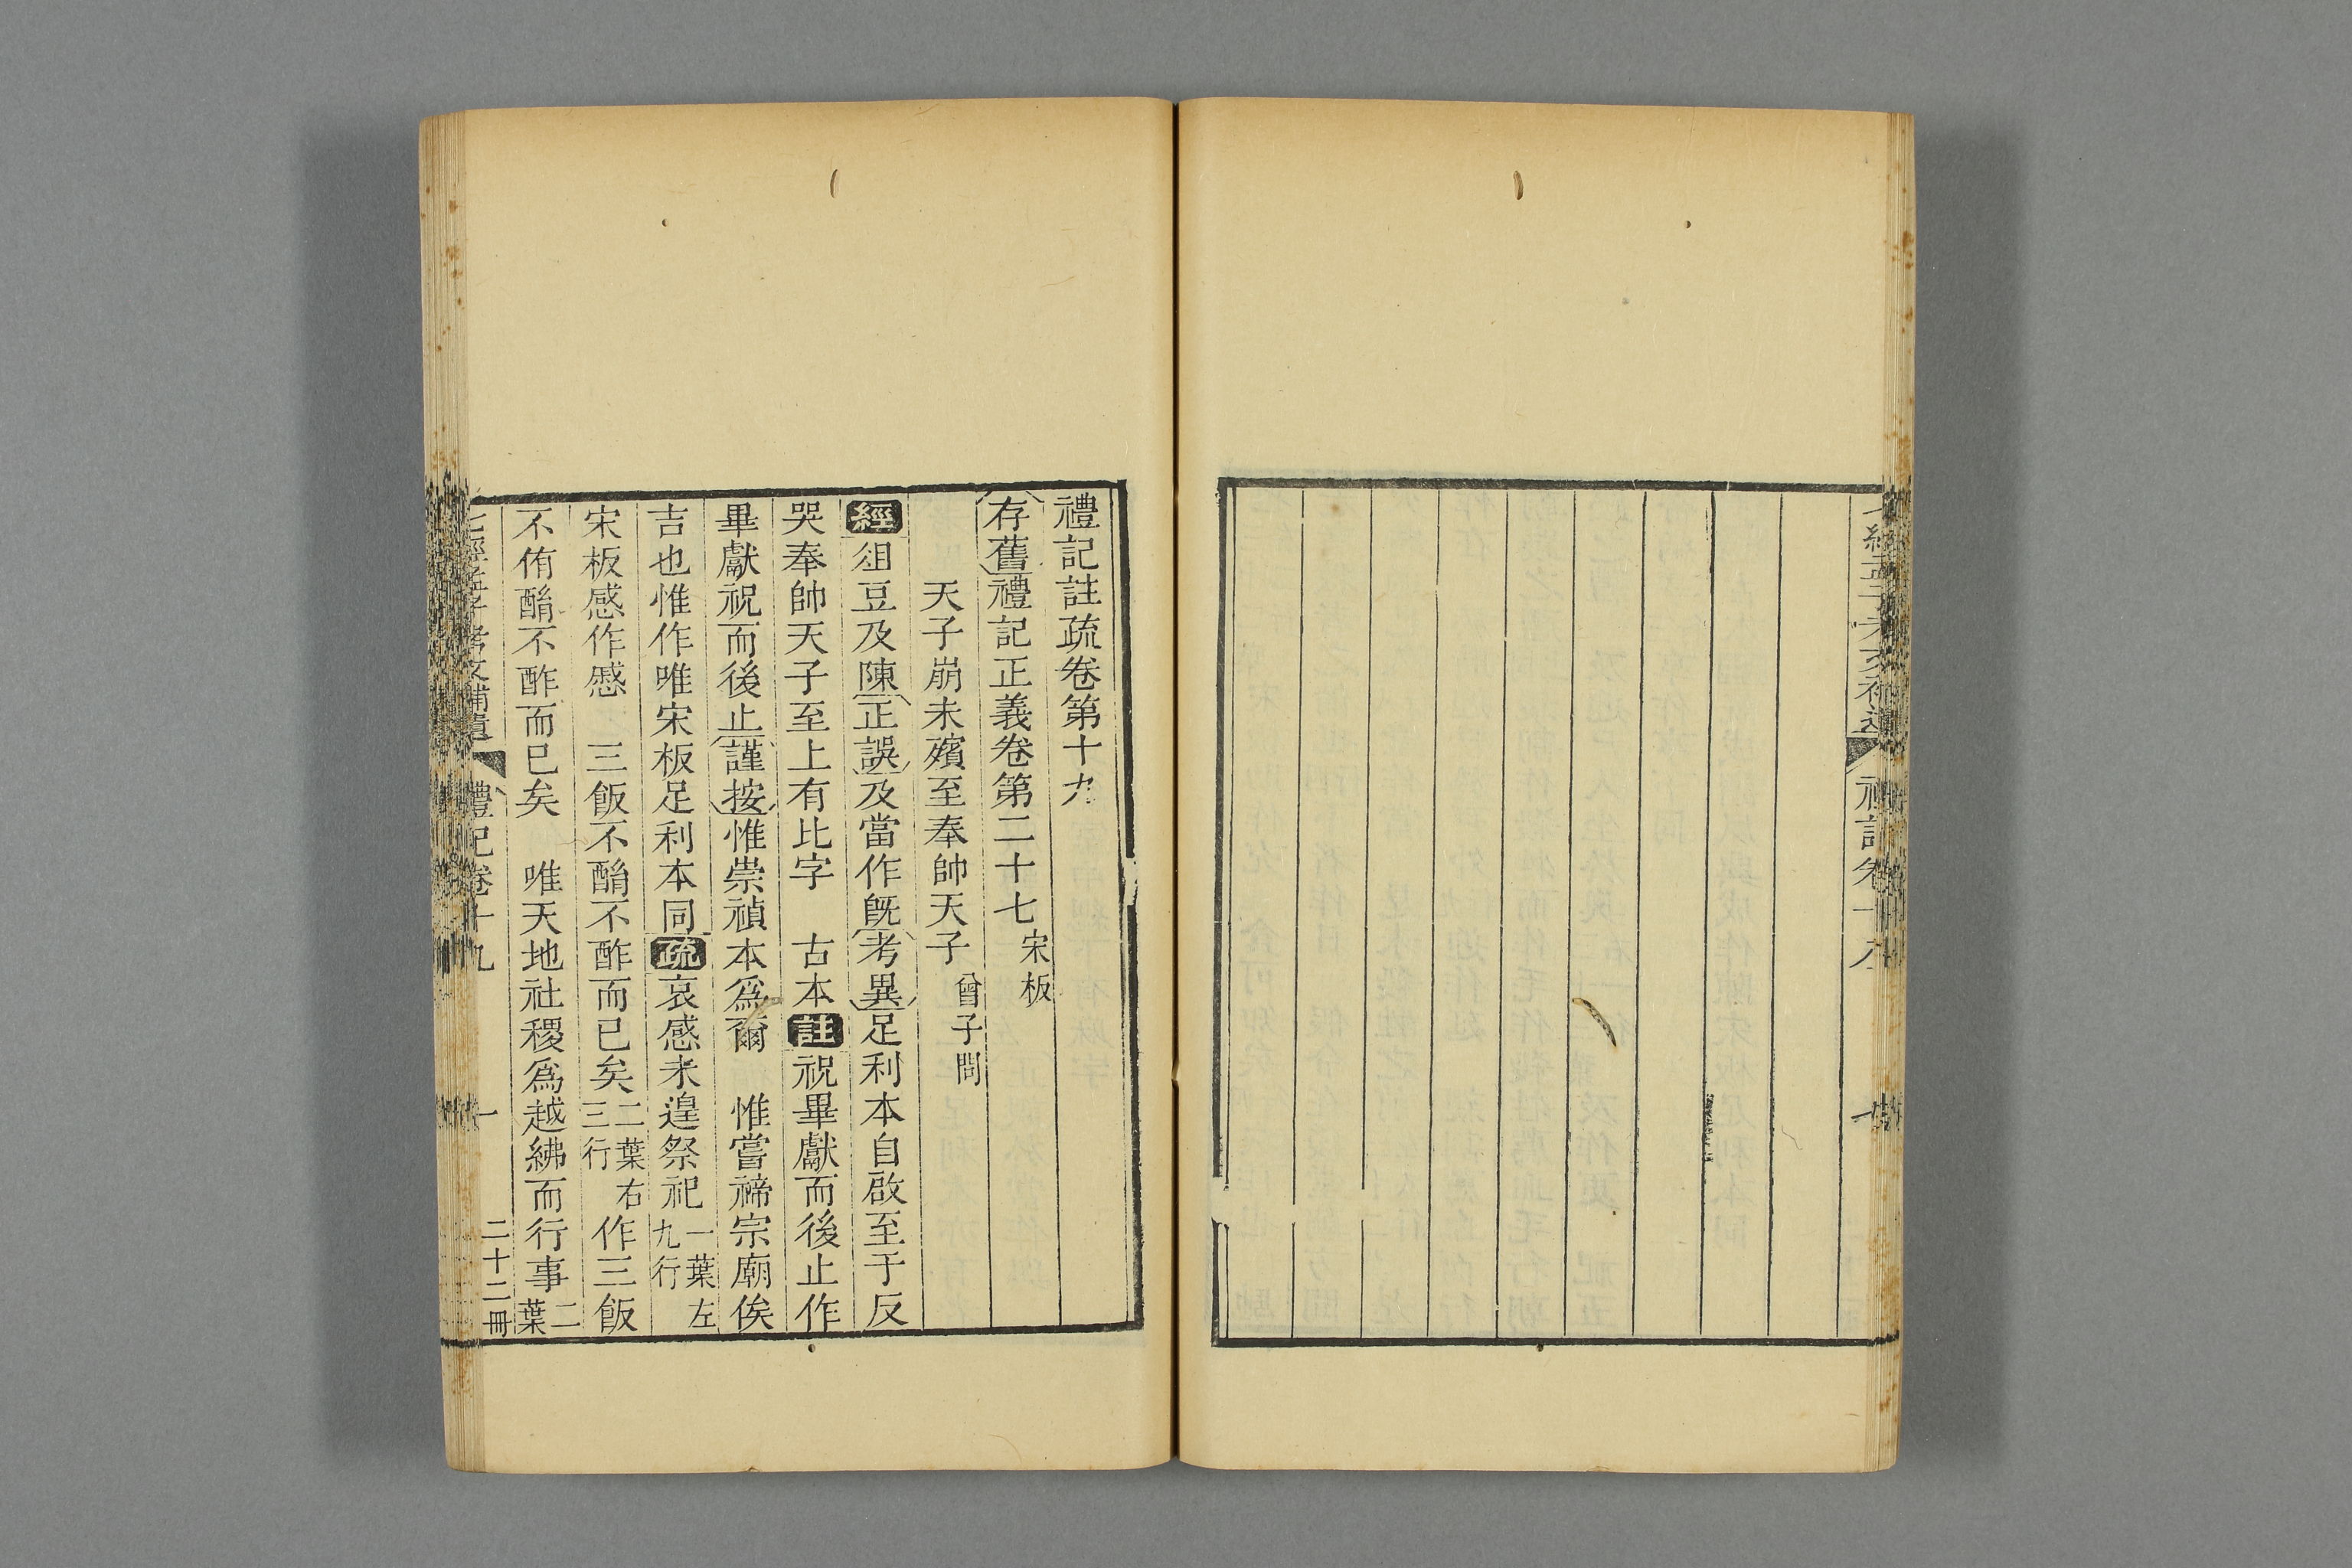 七經孟子考文補遺 禮記卷十八
禮記註疏卷第十九
存舊禮記正義卷第二十七宋板
天子崩未殯至奉帥天子曾子問
經俎豆及陳正誤及當作旣考異足利本自啟至于反
哭奉帥天子至上有比字 古本註祝畢獻而後止作
畢獻祝而後止謹按惟崇禎本爲爾 惟嘗禘宗廟俟
吉也惟作唯宋板足利本同疏哀感未遑祭祀一葉左九行
宋板感作慼 三飯不酳不酢而已矣二葉右三行作三飯
不侑酳不酢而已矣 唯天地社稷爲越紼而行事二葉
七經孟子考文補遺 禮記卷十九 一 二十二冊